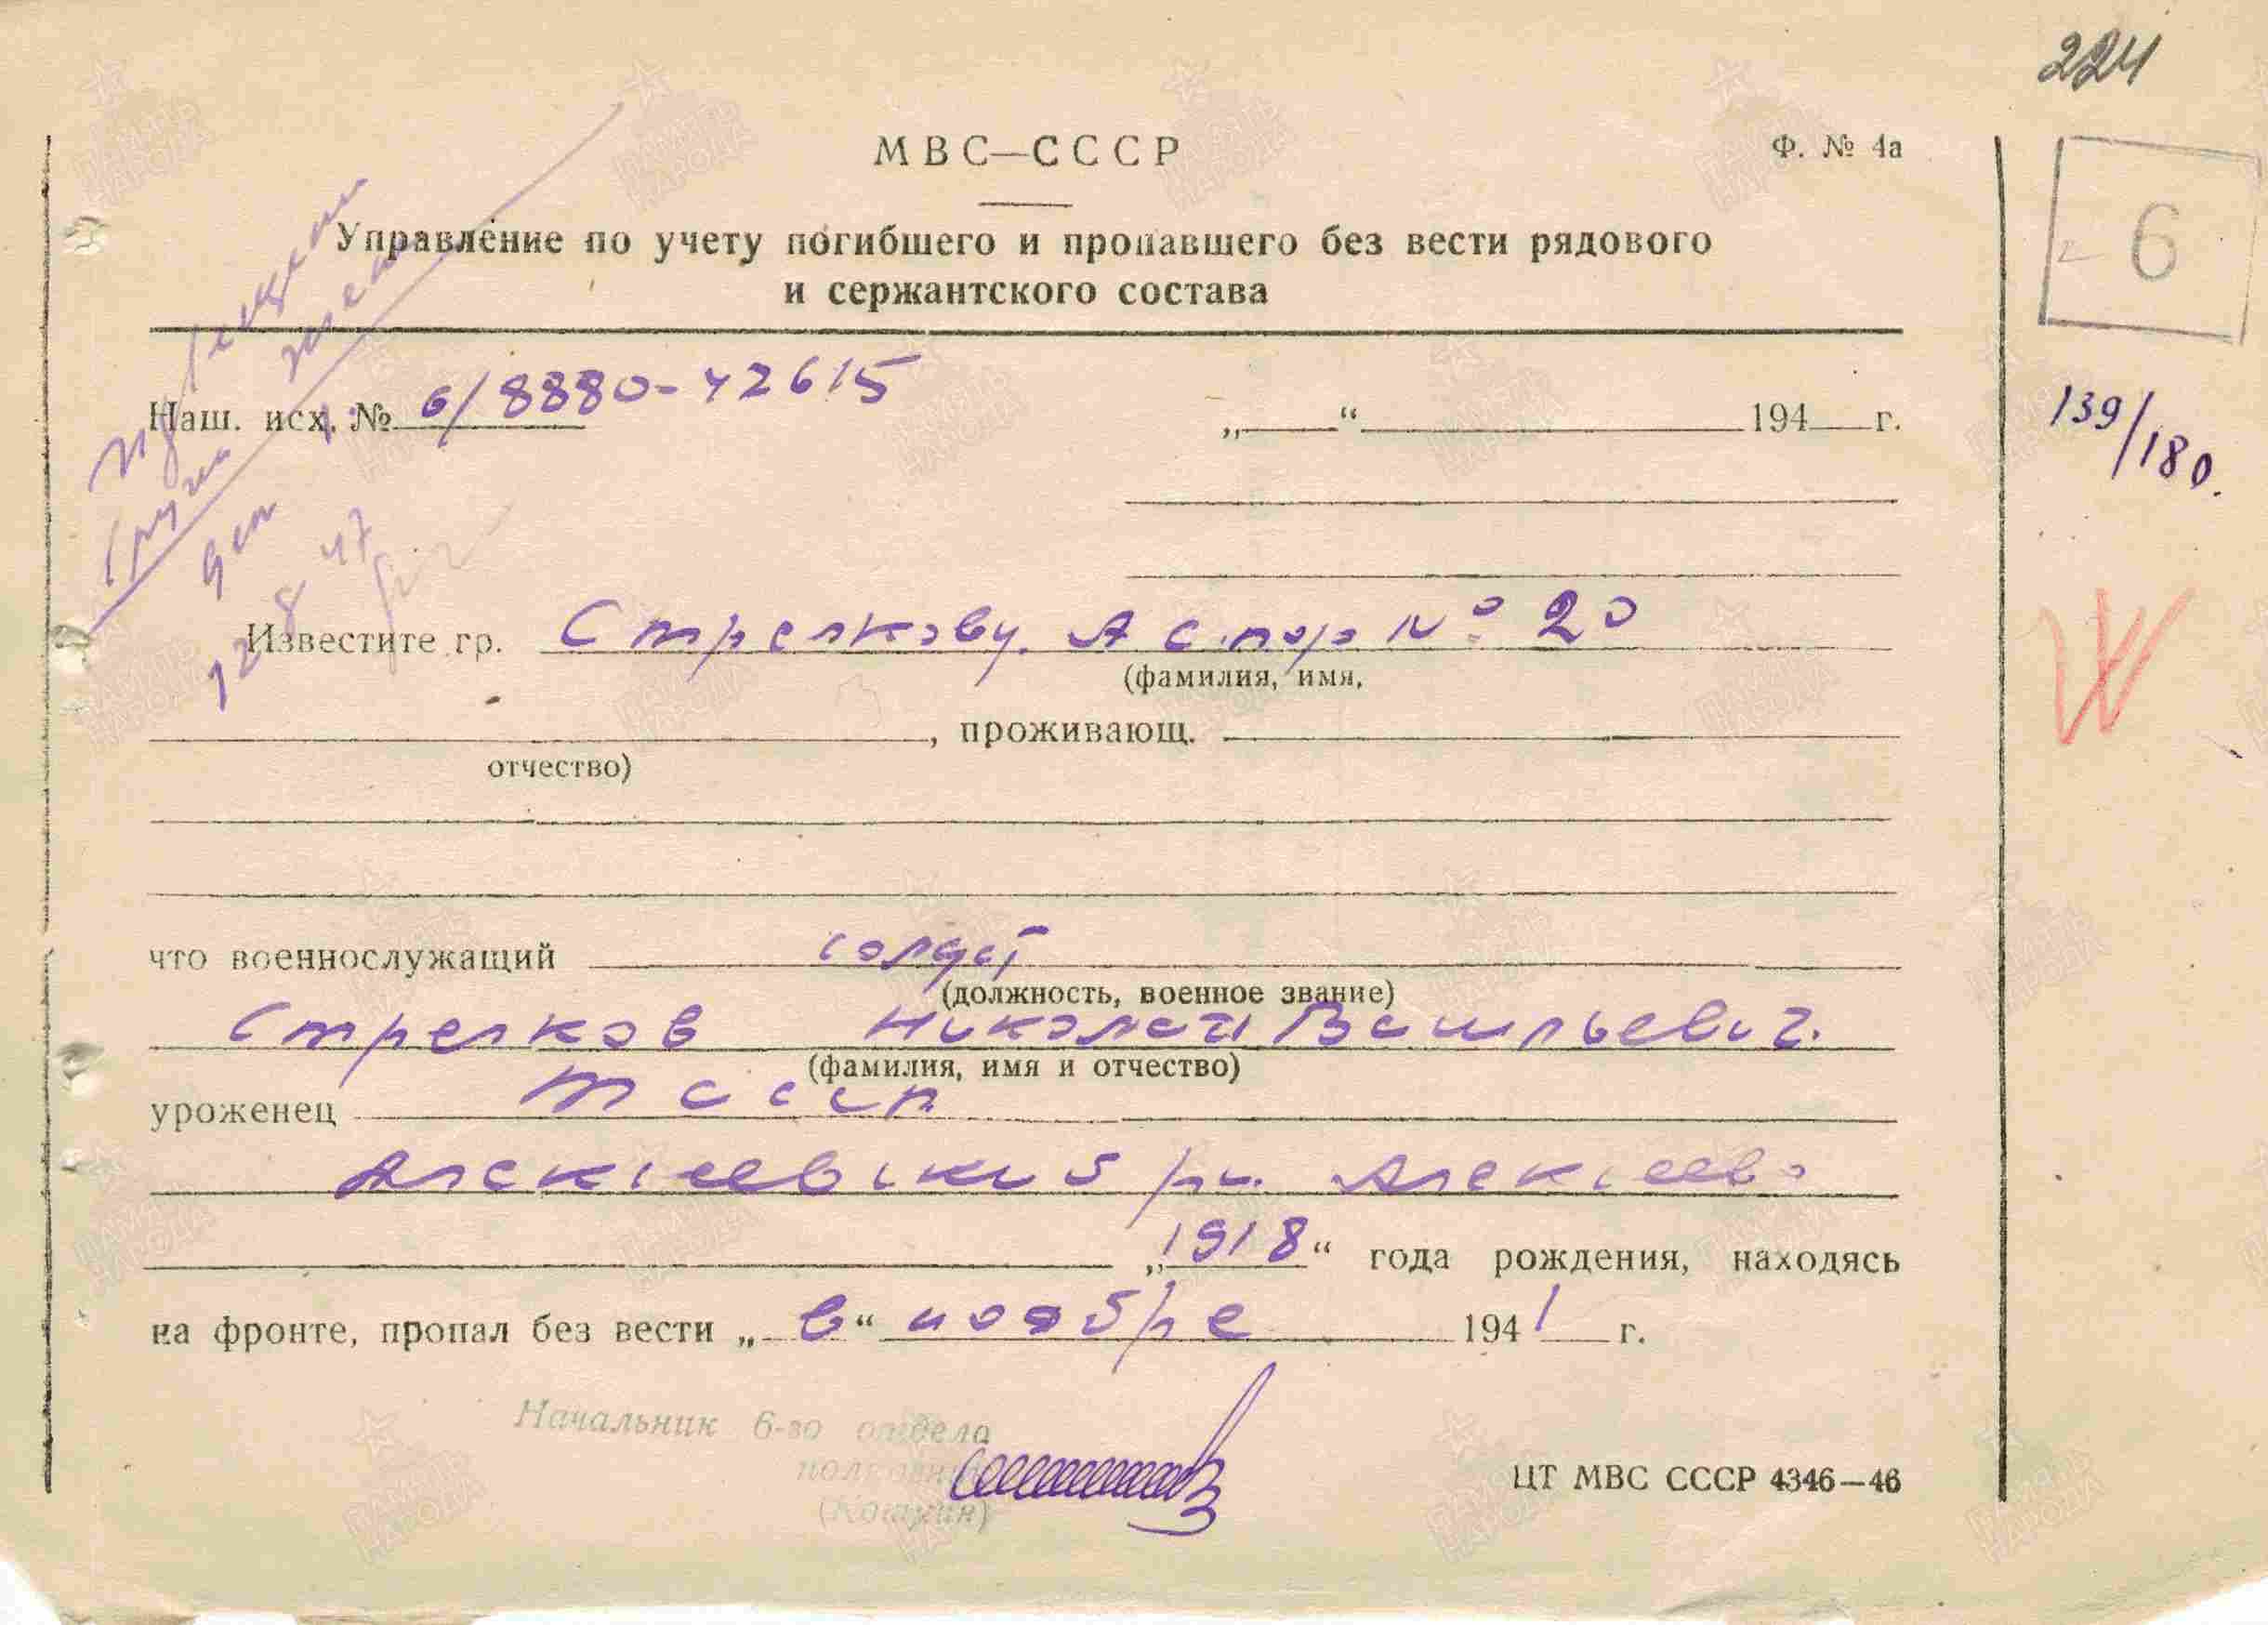 224
МВС—СССР
Ф. № 4а
Управление по учету погибшего и пропавшего без вести рядового
и сержантского состава
6
Наш. исх. № 6/8880-42615
„ “ 194 г.
139/180.
Известите гр. Стрелкову. А с. пор № 20
(фамилия, имя,
, проживающ.
отчество)
что военнослужащий солдат
(должность, военное звание)
Стрелков Николай Васильевич.
(фамилия, имя и отчество)
уроженец ТАССР
Алексеевский р-н. Алексеево
„1918“ года рождения, находясь
на фронте, пропал без вести „в“ ноябре 1941 г.
Начальник 6-го отдела
полковник
ЦТ МВС СССР 4346—46
ПАМЯТЬ НАРОДА